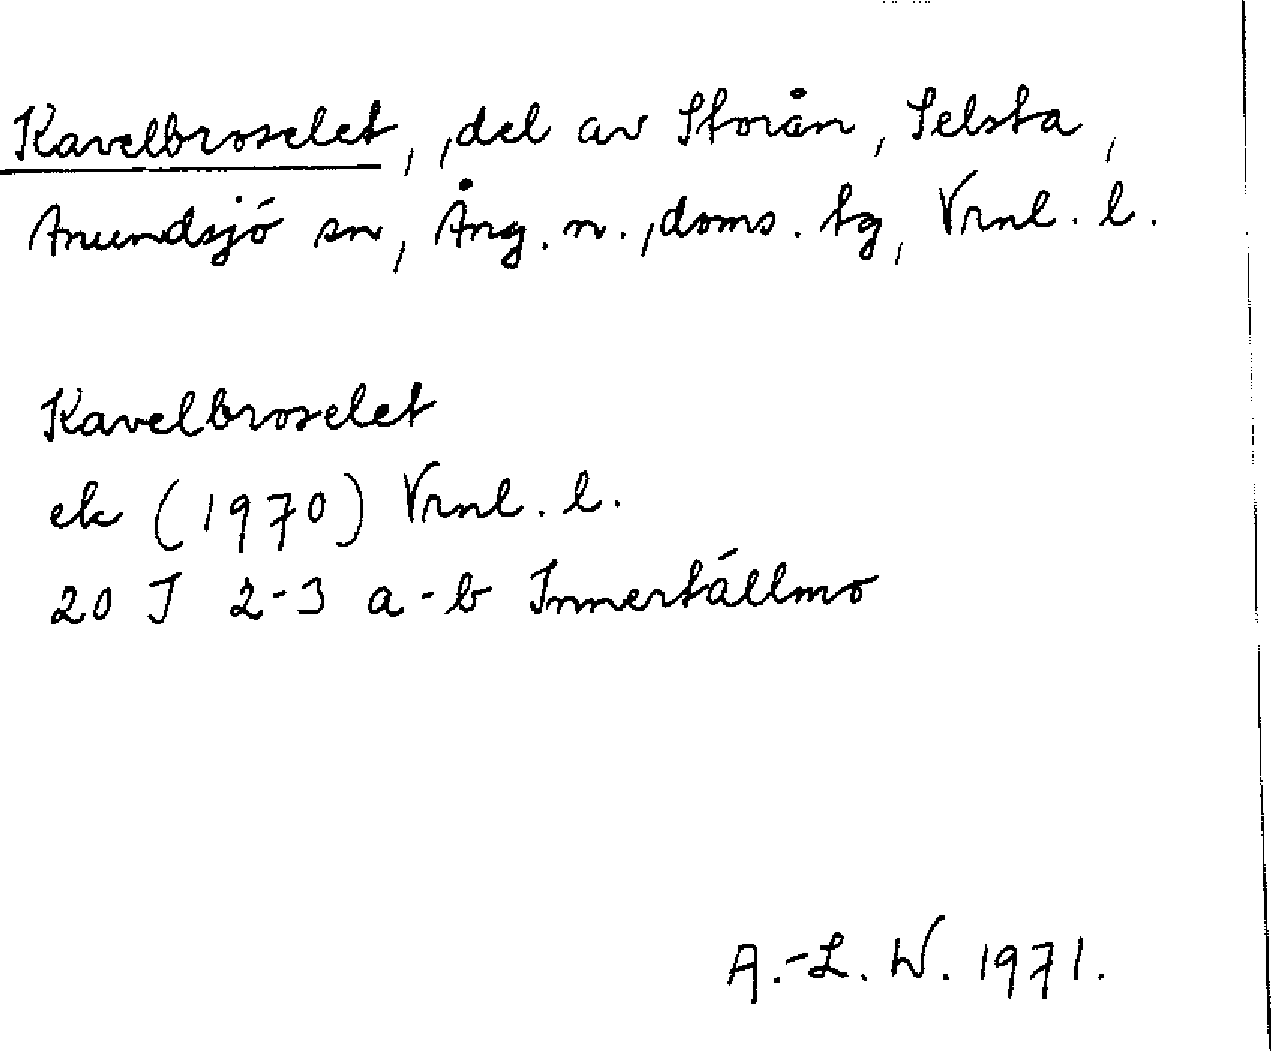 Kavelbroselet, del av Storån, Selsta,
Anundsjö sn, Ång. n., doms. tg, Vrnl. l.
Kavelbroselet
ek (1970) Vrnl. l.
20 J 2-3 a-b Innertällmo
A.-L. W. 1971.